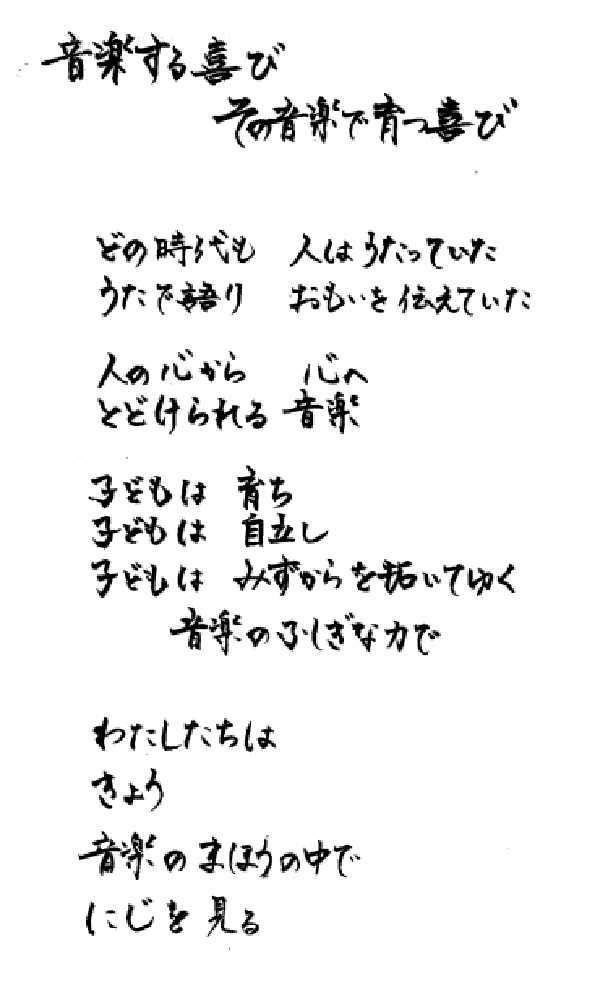 音楽する喜び
その音楽で育つ喜び
どの時代も 人はうたっていた
うたで語り おもいを伝えていた
人の心から 心へ
とどけられる 音楽
子どもは 育ち
子どもは 自立し
子どもは みずからを拓いてゆく
音楽のふしぎな力で
わたしたちは
きょう
音楽のまほうの中で
にじを見る